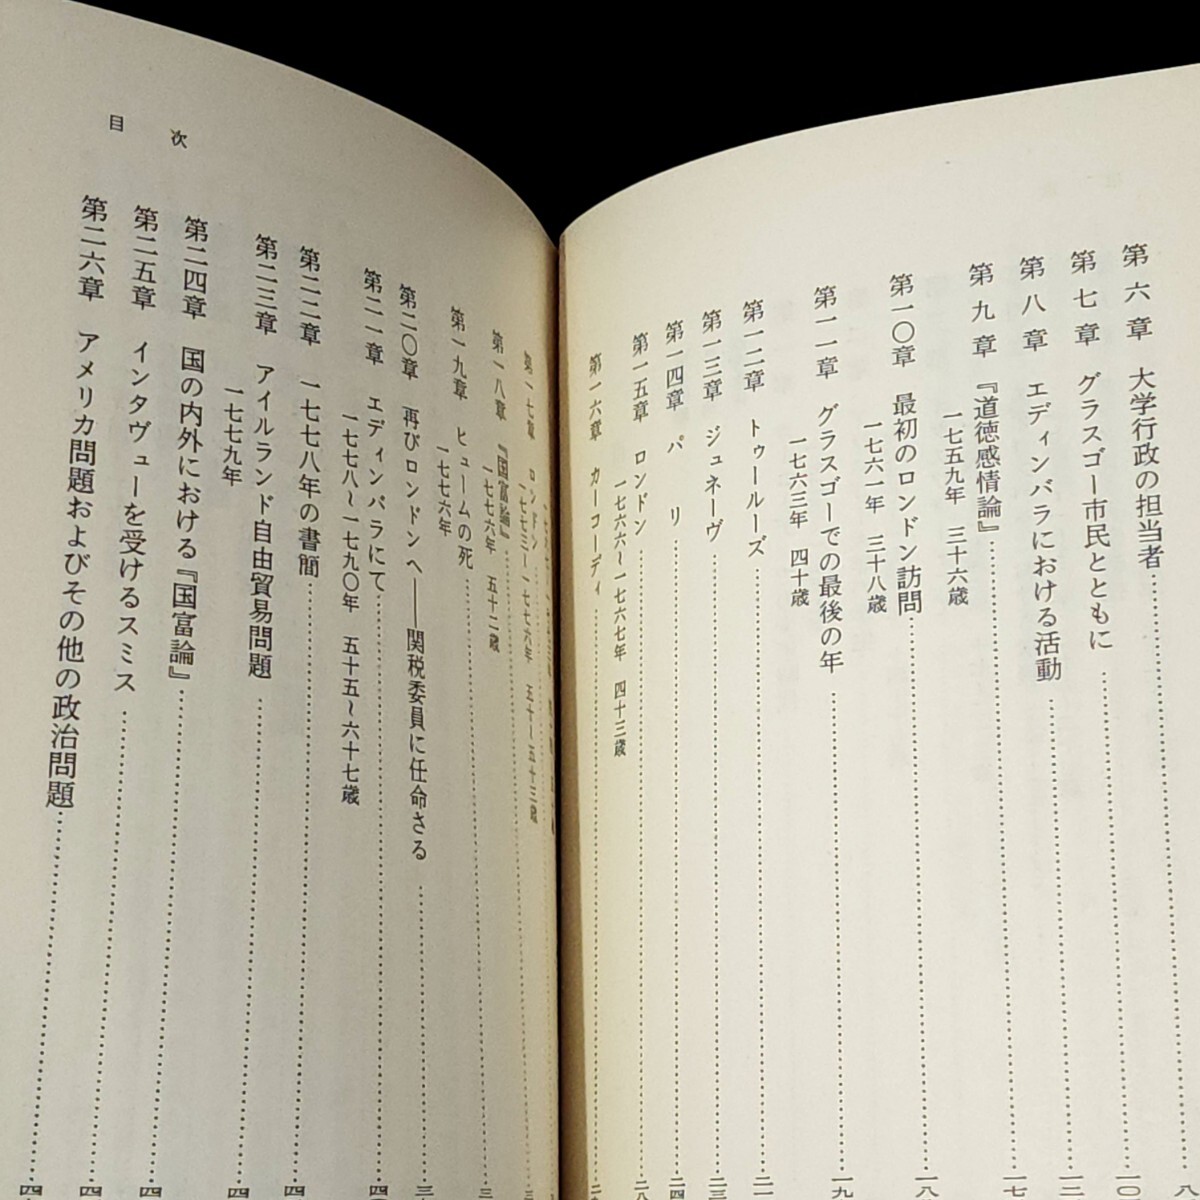 第六章 大学行政の担当者
第七章 グラスゴー市民とともに
第八章 エディンバラにおける活動
第九章 『道徳感情論』
一七五九年 三十六歳
第一〇章 最初のロンドン訪問
一七六一年 三十八歳
第一一章 グラスゴーでの最後の年
一七六三年 四十歳
第一二章 トゥールーズ
第一三章 ジュネーヴ
第一四章 パリ
第一五章 ロンドン
一七六六〜一七六七年 四十三歳
第一六章 カーコーディ
第一七章 ロンドン
一七七三〜一七七六年 五十〜五十三歳
第一八章 『国富論』
一七七六年 五十二歳
第一九章 ヒュームの死
一七七六年
第二〇章 再びロンドンへ——関税委員に任命さる
第二一章 エディンバラにて
一七七八〜一七九〇年 五十五〜六十七歳
第二二章 一七七八年の書簡
第二三章 アイルランド自由貿易問題
一七七九年
第二四章 国の内外における『国富論』
第二五章 インタヴューを受けるスミス
第二六章 アメリカ問題およびその他の政治問題
目次